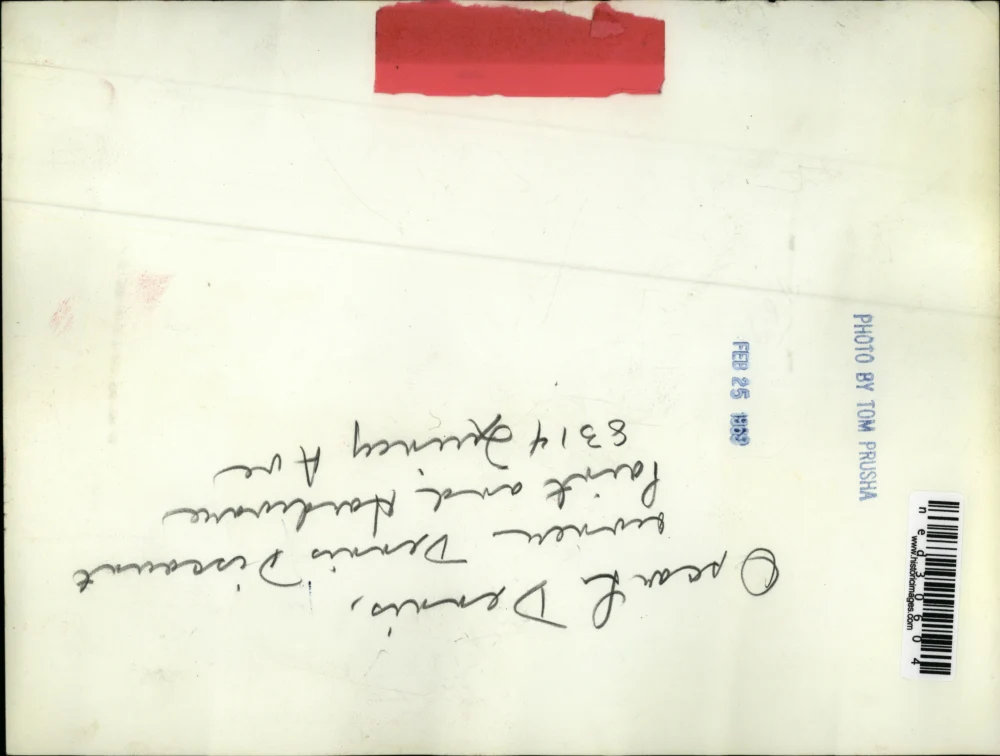 Oscar L. Dennis,
owner Dennis Discount
Paint and Hardware
8314 Quincy Ave
FEB 25
PHOTO BY TOM PRUSHA
ned30604
www.historicimages.com